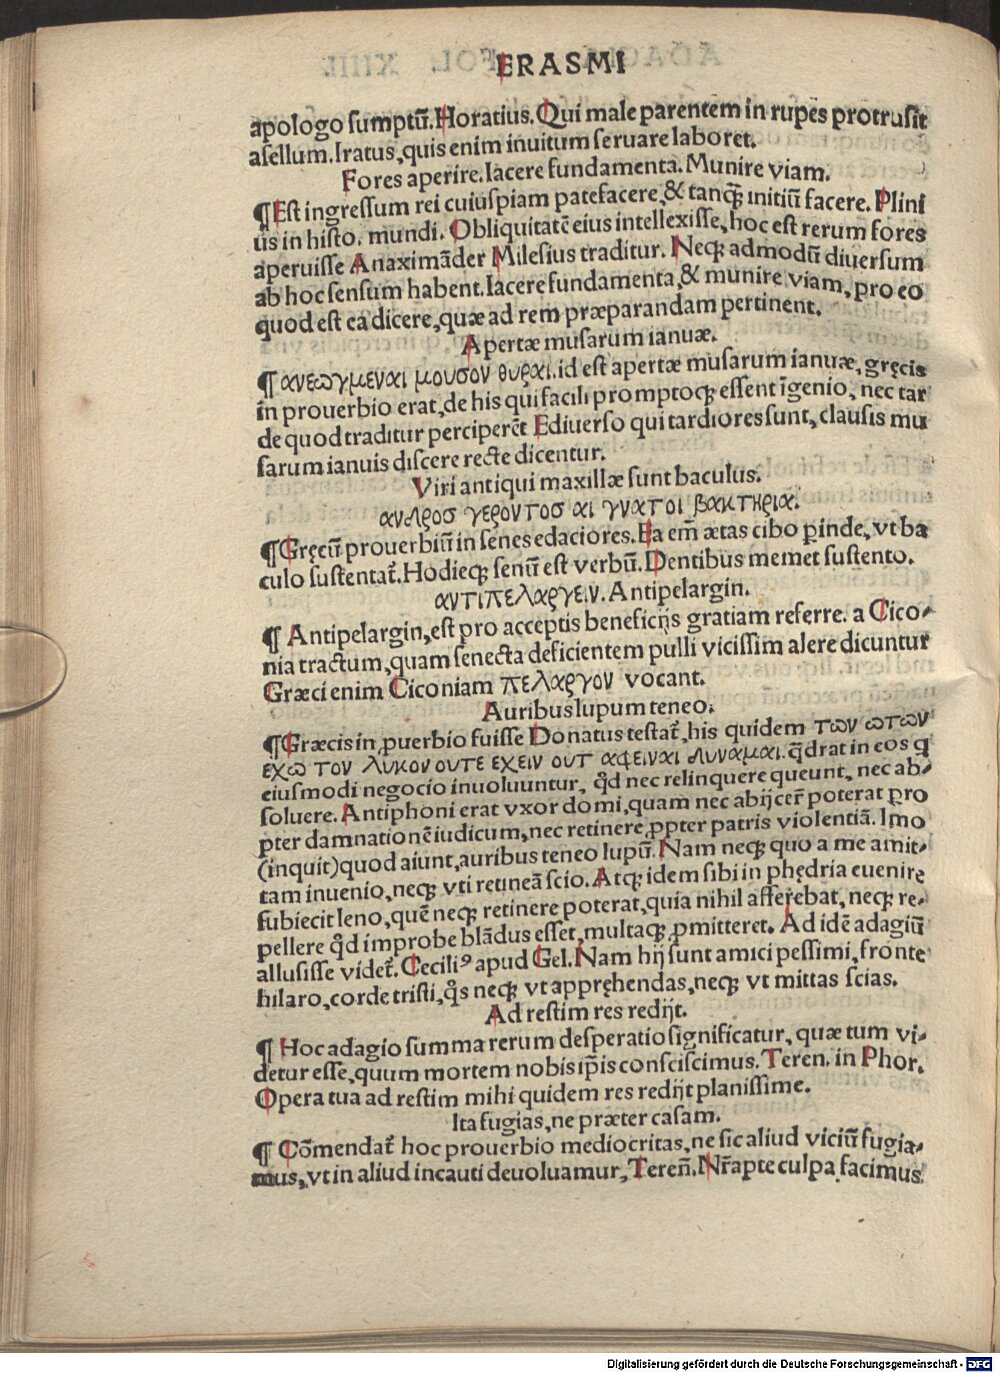 ERASMI
apologo sumptū. Horatius. Qui male parentem in rupes protrusit
asellum. Iratus, quis enim inuitum seruare laboret.
Fores aperire. Iacere fundamenta. Munire viam.
¶ Est ingressum rei cuiuspiam patefacere, & tanq̄ initiū facere. Plini
us in histo. mundi. Obliquitatē eius intellexisse, hoc est rerum fores
aperuisse Anaximāder Milesius traditur. Neqꝫ admodū diuersum
ab hoc sensum habent. Iacere fundamenta, & munire viam, pro eo
quod est ea dicere, quæ ad rem præparandam pertinent.
Apertæ musarum ianuæ.
¶ ανεωγμεναι μουσον θυραι. id est apertæ musarum ianuæ, gręcis
in prouerbio erat, de his qui facili promptoqꝫ essent īgenio, nec tar
de quod traditur perciperēt Ediuerso qui tardiores sunt, clausis mu
sarum ianuis discere recte dicentur.
Viri antiqui maxillæ sunt baculus.
ανδροσ γεροντοσ αι γνατοι βακτηρια.
¶ Gręcū prouerbiū in senes edaciores. Ea em̄ ætas cibo ꝑinde, vt ba
culo sustentat᷑. Hodieqꝫ senū est verbū. Dentibus memet sustento.
αντιπελαργειν. Antipelargin.
¶ Antipelargin, est pro acceptis beneficijs gratiam referre. a Cico-
nia tractum, quam senecta deficientem pulli vicissim alere dicuntur
Græci enim Ciconiam πελαργον vocant.
Auribus lupum teneo.
¶ Græcis in ꝓuerbio fuisse Donatus testat᷑, his quidem των ωτων
εχω τον λυκον ουτε εχειν ουτ αφειναι δυναμαι. q̄drat in eos q
eiusmodi negocio inuoluuntur, qd̓ nec relinquere queunt, nec ab-
soluere. Antiphoni erat vxor domi, quam nec abijcer̄ poterat pro
pter damnationē iudicum, nec retinere, ꝓpter patris violentiā. Imo
(inquit) quod aiunt, auribus teneo lupū. Nam neqꝫ quo a me amit-
tam inuenio, neqꝫ vti retineā scio. Atqꝫ idem sibi in phędria euenire
subiecit leno, quē neqꝫ retinere poterat, quia nihil afferebat, neqꝫ re-
pellere qd̓ improbe blādus esset, multaqꝫ ꝓmitteret. Ad idē adagiū
allusisse videt᷑. Ceciliꝰ apud Gel. Nam hij sunt amici pessimi, fronte
hilaro, corde tristi, q̄s neqꝫ vt appręhendas, neqꝫ vt mittas scias.
Ad restim res redijt.
¶ Hoc adagio summa rerum desperatio significatur, quæ tum vi-
detur esse, quum mortem nobis ip̄is consciscimus. Teren. in Phor.
Opera tua ad restim mihi quidem res redijt planissime.
Ita fugias, ne præter casam.
¶ Cōmendat᷑ hoc prouerbio mediocritas, ne sic aliud viciū fugia-
mus, vt in aliud incauti deuoluamur, Tereñ. Nr̄apte culpa facimus
Digitalisierung gefördert durch die Deutsche Forschungsgemeinschaft - DFG